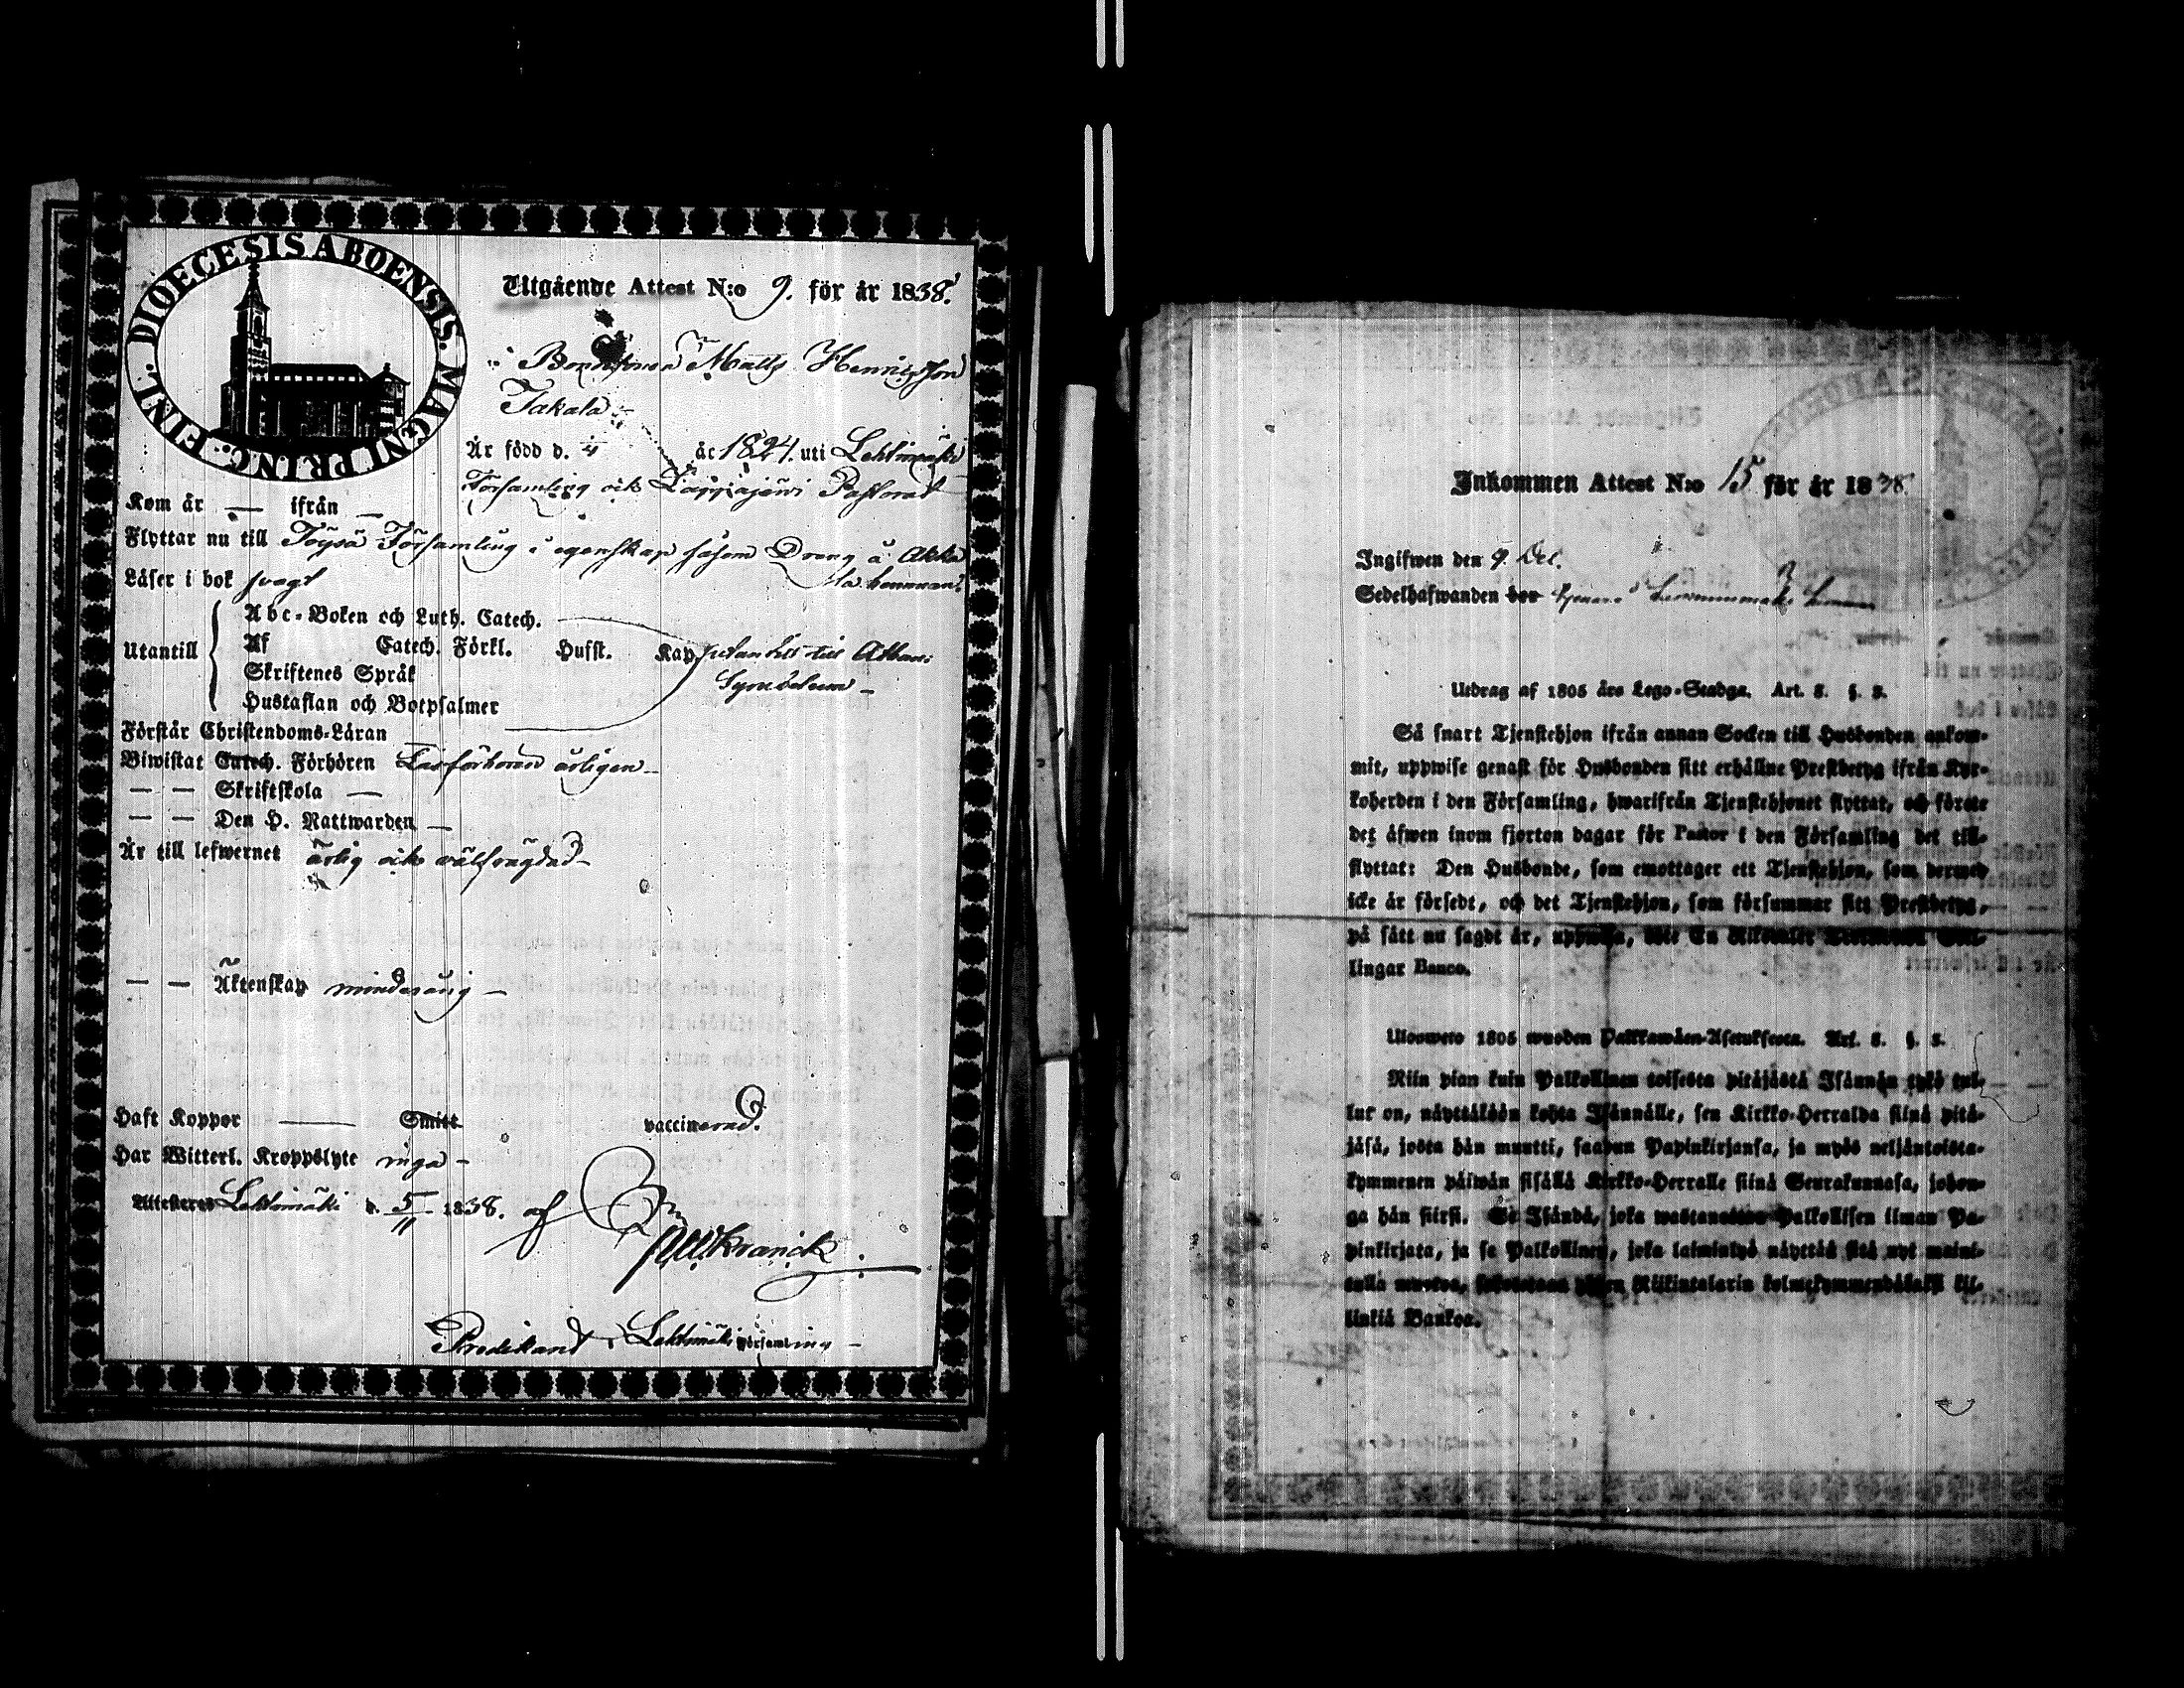 DIOECESIS ABOENSIS. MAGNI PRINC. FINL.
Utgående Attest N:o 9. för år 1838.
Bondesonen Matts Henricsson
Takala
Är född d. år 1824. uti Lehtimäki
Församling och Lappajärvi Pastorat
Kom år — ifrån —
Flyttar nu till Töysä Församling i egenskap såsom Dreng å
hemman
Läser i bok svagt
Utantill
Abc-Boken och Luth. Catech.
Af Catech. Förkl. Hufst. Kap. utantill till Athan:
Skriftenes Språk Symbolum —
Hustaflan och Botpsalmer
Förstår Christendoms-Läran
Biwistat Catech. Förhören Läsförhören årligen —
— — Skriftskola —
— — Den H. Nattwarden —
Är till lefwernet ärlig och välfrägdad —
— — Äktenskap minderårig —
Haft Koppor — Smitt vaccinerad.
Har Witterl. Kroppslyte inga —
Attesteras Lehtimäki d. 5/11 1838. af
Kranck.
Predikant i Lehtimäki Församling —
Inkommen Attest N:o 15 för år 1838.
Ingifwen den 9 Dec.
Sedelhafwanden bor
Utdrag af 1805 års Lego-Stadga. Art. 8. §. 3.
Så snart Tjenstehjon ifrån annan Socken till Husbonden ankom-
mit, uppwise genast för Husbonden sitt erhållne Prestbetyg ifrån Kyr-
koherden i den Församling, hwarifrån Tjenstehjonet flyttat, och förete
det äfwen inom fjorton dagar för Pastor i den Församling det till-
flyttat: Den Husbonde, som emottager ett Tjenstehjon, som dermed
icke är försedt, och det Tjenstehjon, som försummar sitt Prestbetyg,
på sätt nu sagdt är, uppwisa, böte En Riksdaler
lingar Banco.
Ulosweto 1805 wuoden Palkkawäen-Asetuksesta. Art. 8. §. 3.
Niin pian kuin Palkollinen toisesta pitäjästä Isännän tykö tul-
lut on, näyttäköön kohta Isännälle, sen Kirkko-Herralda siinä pitä-
jäsä, josta hän muutti, saadun Papinkirjansa, ja myös neljäntoista-
kymmenen päiwän sisällä Kirkko-Herralle siinä Seurakunnasa, johon-
ga hän siirsi. Se Isändä, joka wastanottaa Palkollisen ilman Pa-
pinkirjata, ja se Palkollinen, joka laiminlyö näyttää sitä nyt maini-
tulla muotoa, Riikintalarin kolmekymmendäkaksi kil-
linkiä Bankoa.